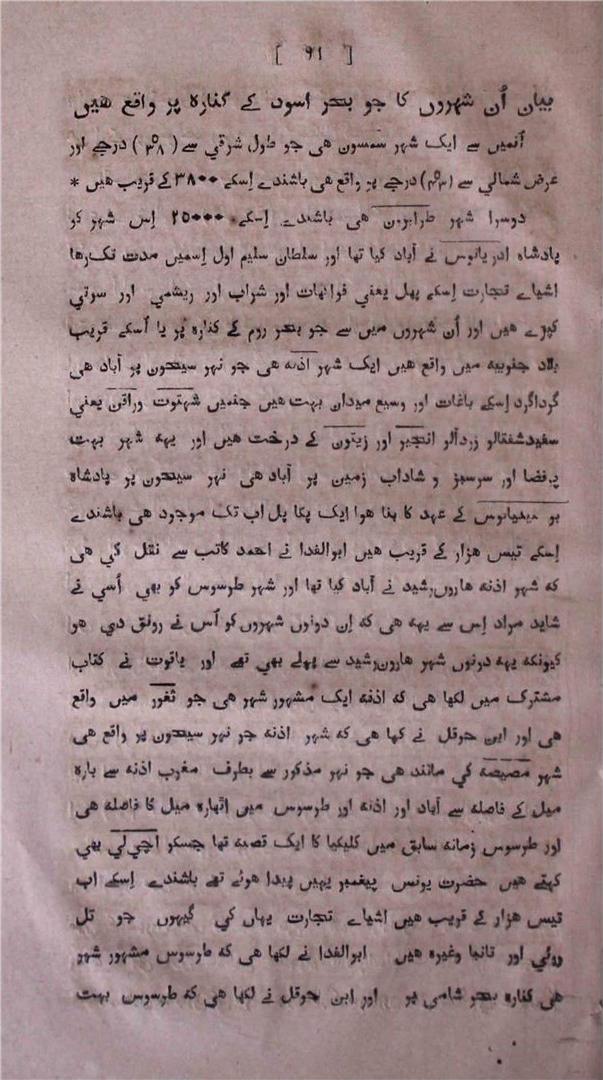 [ ۹۱ ]
بیان اُن شهروں کا جو بحر اسود کے کنارہ پر واقع هیں
اُنمیں سے ایک شهر سمسون هی جو طول شرقی سے ( ۳۸° ) درجے اور
عرض شمالی سے درجے پر واقع هی باشندے اِسکے ۳۸۰۰ کے قریب هیں *
دوسرا شهر طرابزون هی باشندے اِسکے ۲۵۰۰۰ اِس شهر کو
پادشاه ادریانوس نے آباد کیا تھا اور سلطان سلیم اول اِسمیں مدت تک رها
اشیاے تجارت اِسکے پھل یعنی فواکهات اور شراب اور ریشمی اور سوتی
کپڑے هیں اور اُن شهروں میں سے جو بحر روم کے کنارہ پر یا اُسکے قریب
بلاد جنوبیه میں واقع هیں ایک شهر اذنه هی جو نهر سیحون پر آباد هی
گرداگرد اِسکے باغات اور وسیع میدان بهت هیں جنمیں شهتوت وراقن یعنی
سفیدشفتالو زردآلو انجیر اور زیتون کے درخت هیں اور یهه شهر بهت
پرفضا اور سرسبز و شاداب زمین پر آباد هی نهر سیحون پر پادشاه
کے عهد کا بنا هوا ایک پکا پل اب تک موجود هی باشندے
اِسکے تیس هزار کے قریب هیں ابوالفدا نے احمد کاتب سے نقل کی هی
که شهر اذنه هارون‌رشید نے آباد کیا تھا اور شهر طرسوس کو بھی اُسی نے
شاید مراد اِس سے یهه هی که اِن دونوں شهروں کو اُس نے رونق دی هو
کیونکه یهه دونوں شهر هارون‌رشید سے پهلے بھی تھے اور یاقوت نے کتاب
مشترک میں لکھا هی که اذنه ایک مشهور شهر هی جو ثغور میں واقع
هی اور ابن حوقل نے کها هی که شهر اذنه جو نهر سیحون پر واقع هی
شهر مصیصه کی مانند هی جو نهر مذکور سے بطرف مغرب اذنه سے بارہ
میل کے فاصله سے آباد اور اذنه اور طرسوس میں اٹھارہ میل کا فاصله هی
اور طرسوس زمانه سابق میں کلیکیا کا ایک قصبه تھا جسکو اچ‌لی بھی
کهتے هیں حضرت یونس پیغمبر یهیں پیدا هوئے تھے باشندے اِسکے اب
تیس هزار کے قریب هیں اشیاے تجارت یهاں کی گیهوں جو تل
روئی اور تانبا وغیرہ هیں ابوالفدا نے لکھا هی که طرسوس مشهور شهر
هی کنارہ بحر شامی پر اور ابن حوقل نے لکھا هی که طرسوس بهت